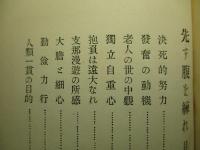 先づ腹を練れ
決死的努力
發奮の動機
老人の世の中觀
獨立自重心
抱負は遠大なれ
支那漫遊の所感
大膽と細心
勤勉力行
人類一貫の目的